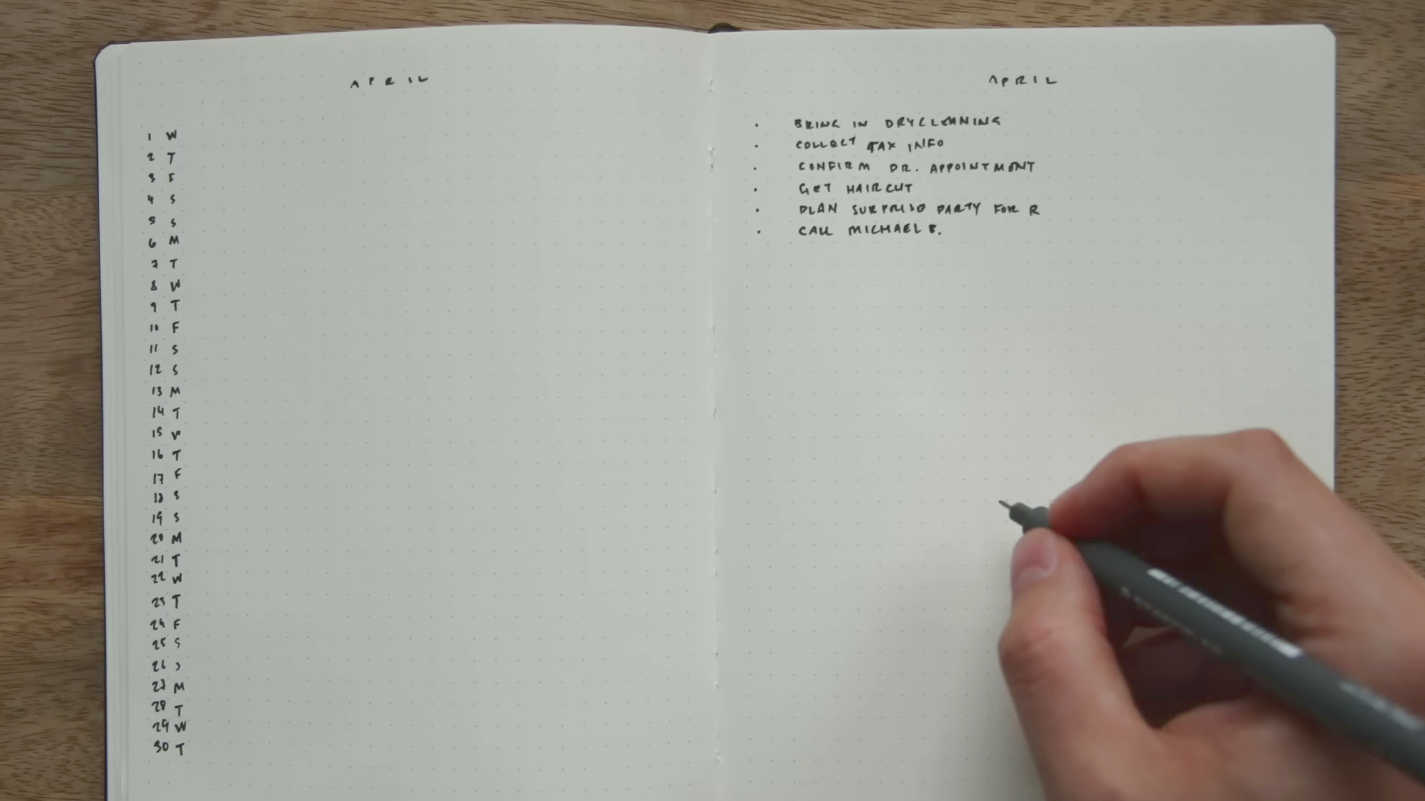 APRIL
1 W
2 T
3 F
4 S
5 S
6 M
7 T
8 W
9 T
10 F
11 S
12 S
13 M
14 T
15 W
16 T
17 F
18 S
19 S
20 M
21 T
22 W
23 T
24 F
25 S
26 S
27 M
28 T
29 W
30 T
APRIL
· BRING IN DRYCLEANING
· COLLECT TAX INFO
· CONFIRM DR. APPOINTMENT
· GET HAIRCUT
· PLAN SURPRISE PARTY FOR R
· CALL MICHAEL B.